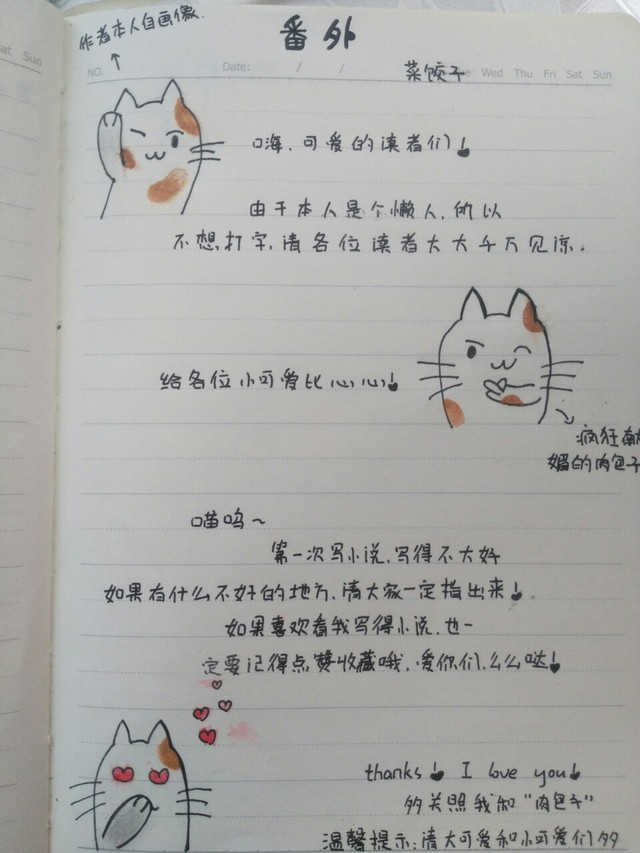 作者本人自画像.
番外
at Sun
NO.
Date: / /
菜饺子
Wed Thu Fri Sat Sun
嗨,可爱的读者们!
由于本人是个懒人,所以
不想打字,请各位读者大大千万见谅.
给各位小可爱比心心!
疯狂献
媚的肉包子
喵呜~
第一次写小说,写得不大好
如果有什么不好的地方,请大家一定指出来!
如果喜欢看我写得小说,也一
定要记得点赞收藏哦,爱你们,么么哒!
thanks! I love you!
多关照我和"肉包子"
温馨提示:请大可爱和小可爱们多